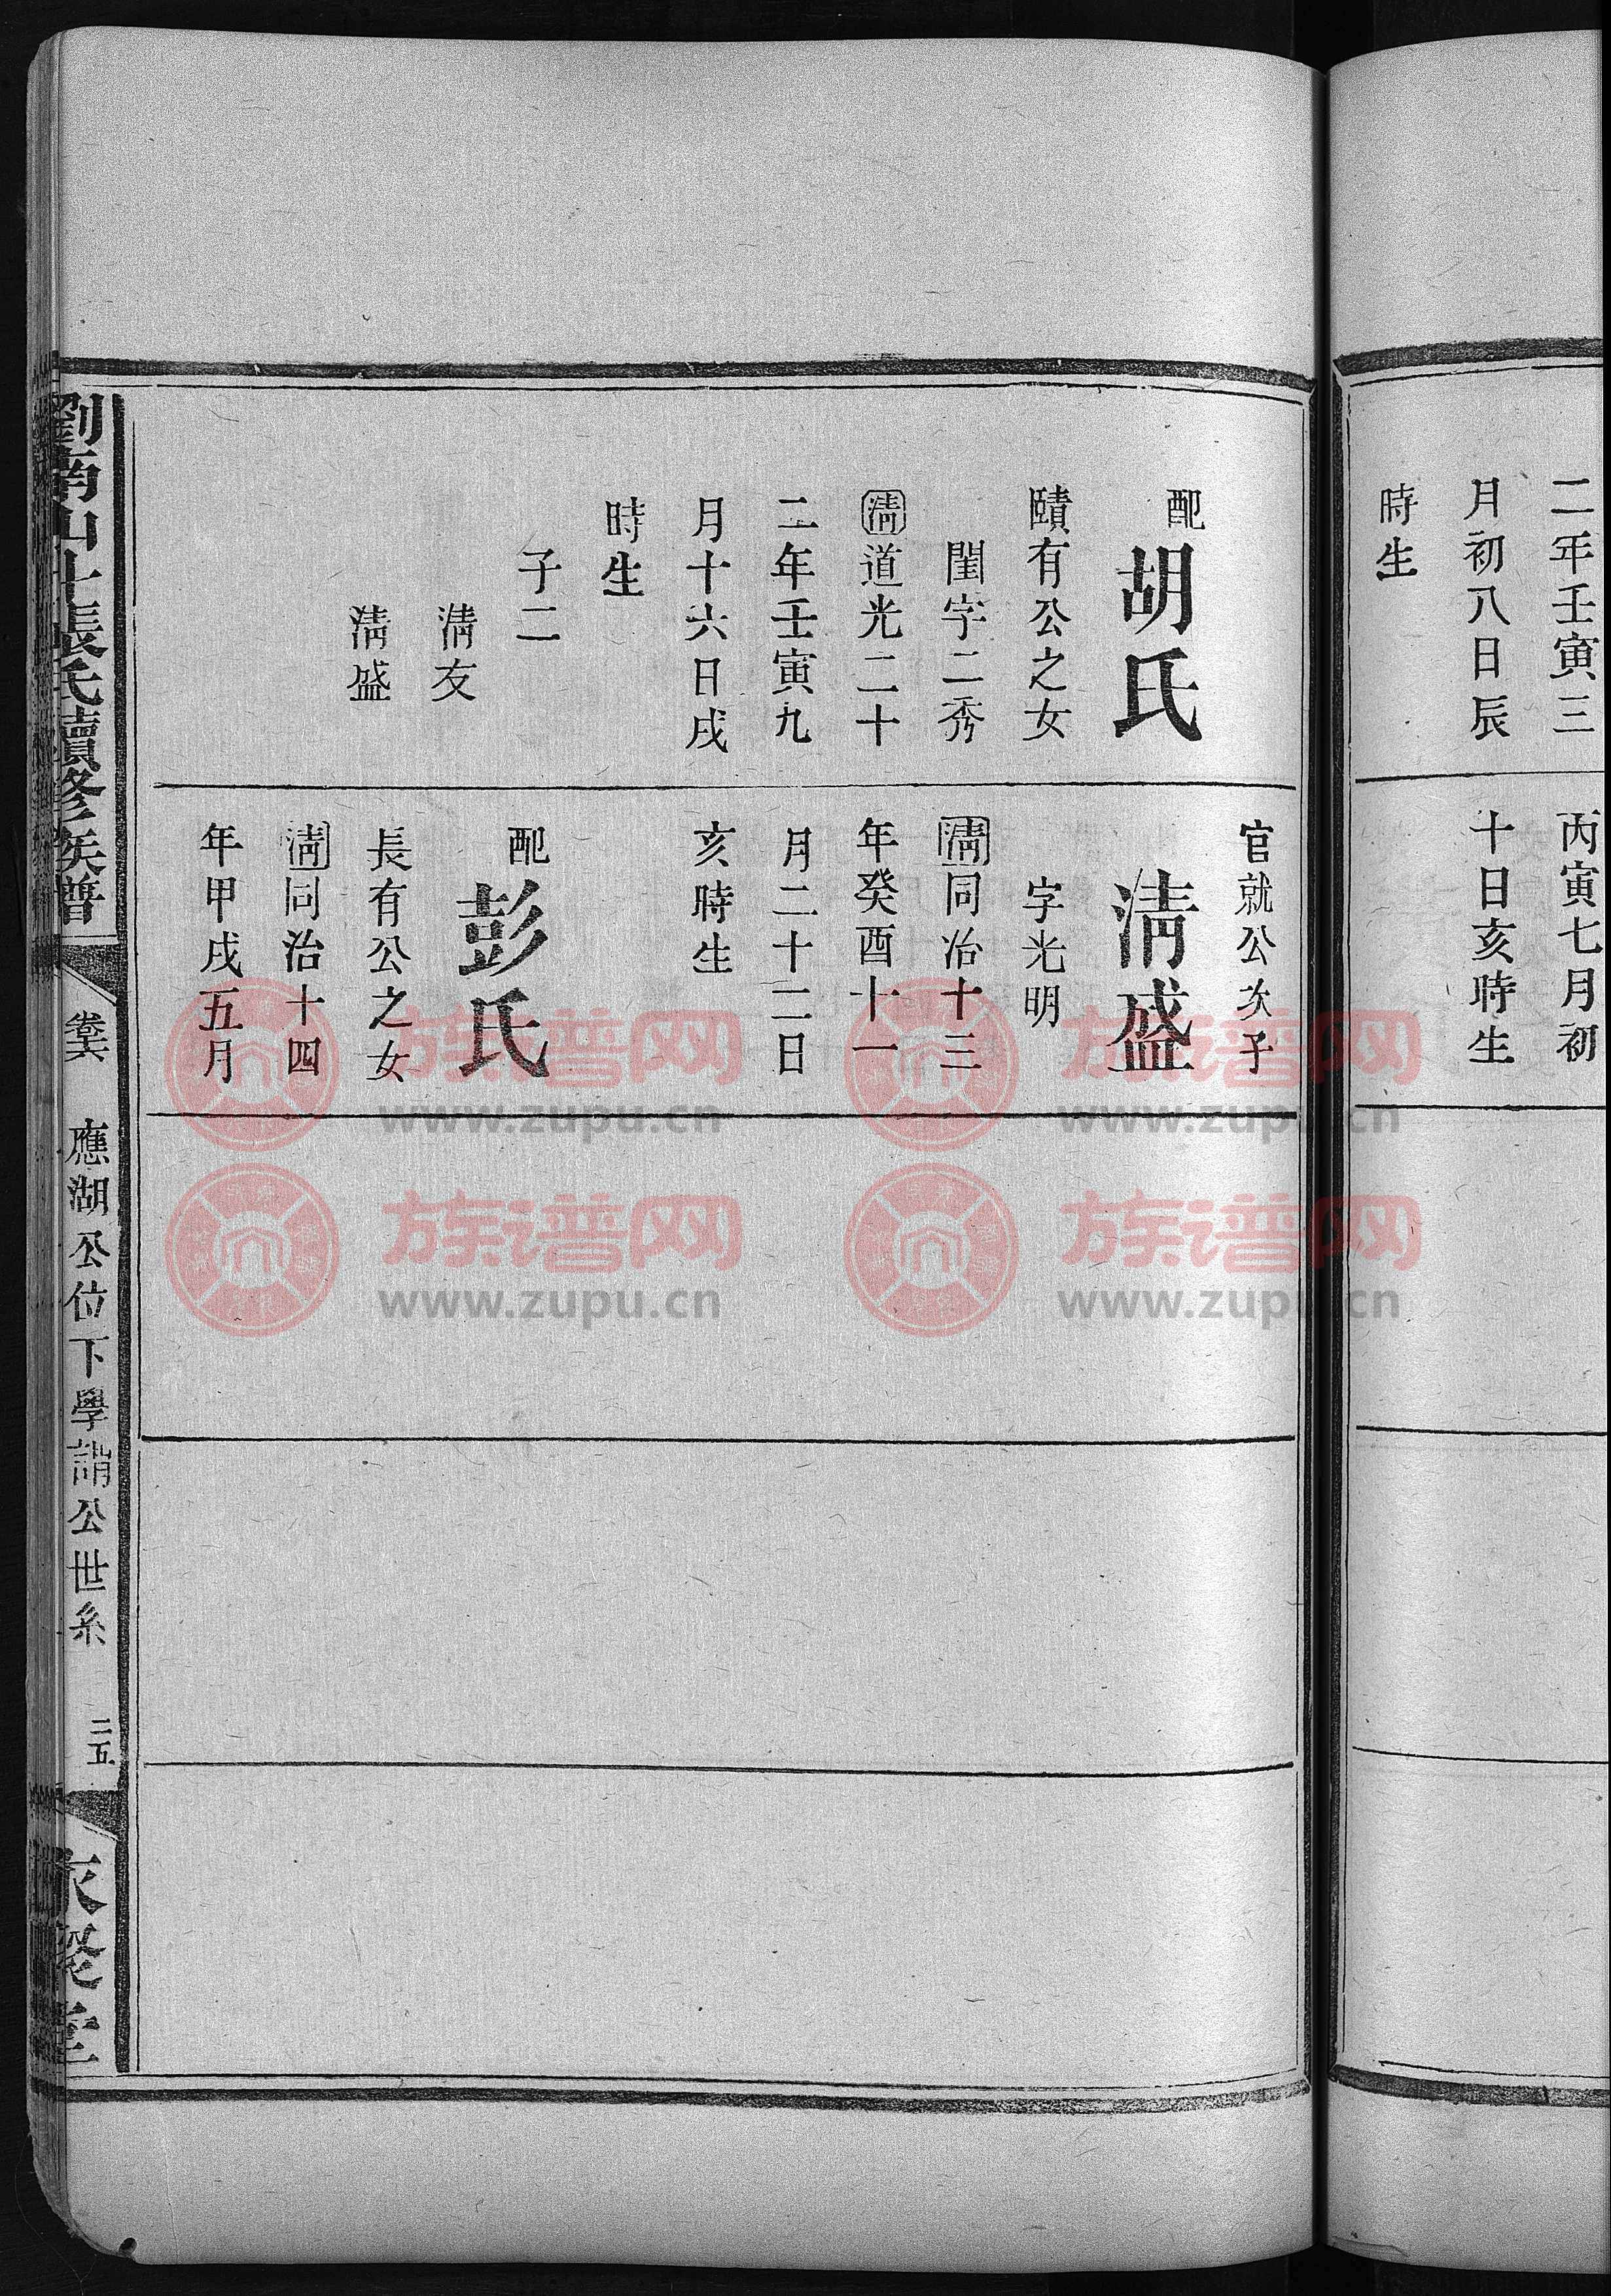 二年壬寅三
月初八日辰
時生
丙寅七月初
十日亥時生
配
胡氏
賾有公之女
閨字二秀
淸道光二十
二年壬寅九
月十六日戌
時生
子二
淸友
淸盛
官就公次子
淸盛
字光明
淸同治十三
年癸酉十一
月二十二日
亥時生
配
彭氏
長有公之女
淸同治十四
年甲戌五月
張氏續修族譜
卷六
應湖公位下學謂公世系
二五
族谱网
www.zupu.cn
族谱网
www.zupu.cn
族谱网
www.zupu.cn
族谱网
www.zupu.cn